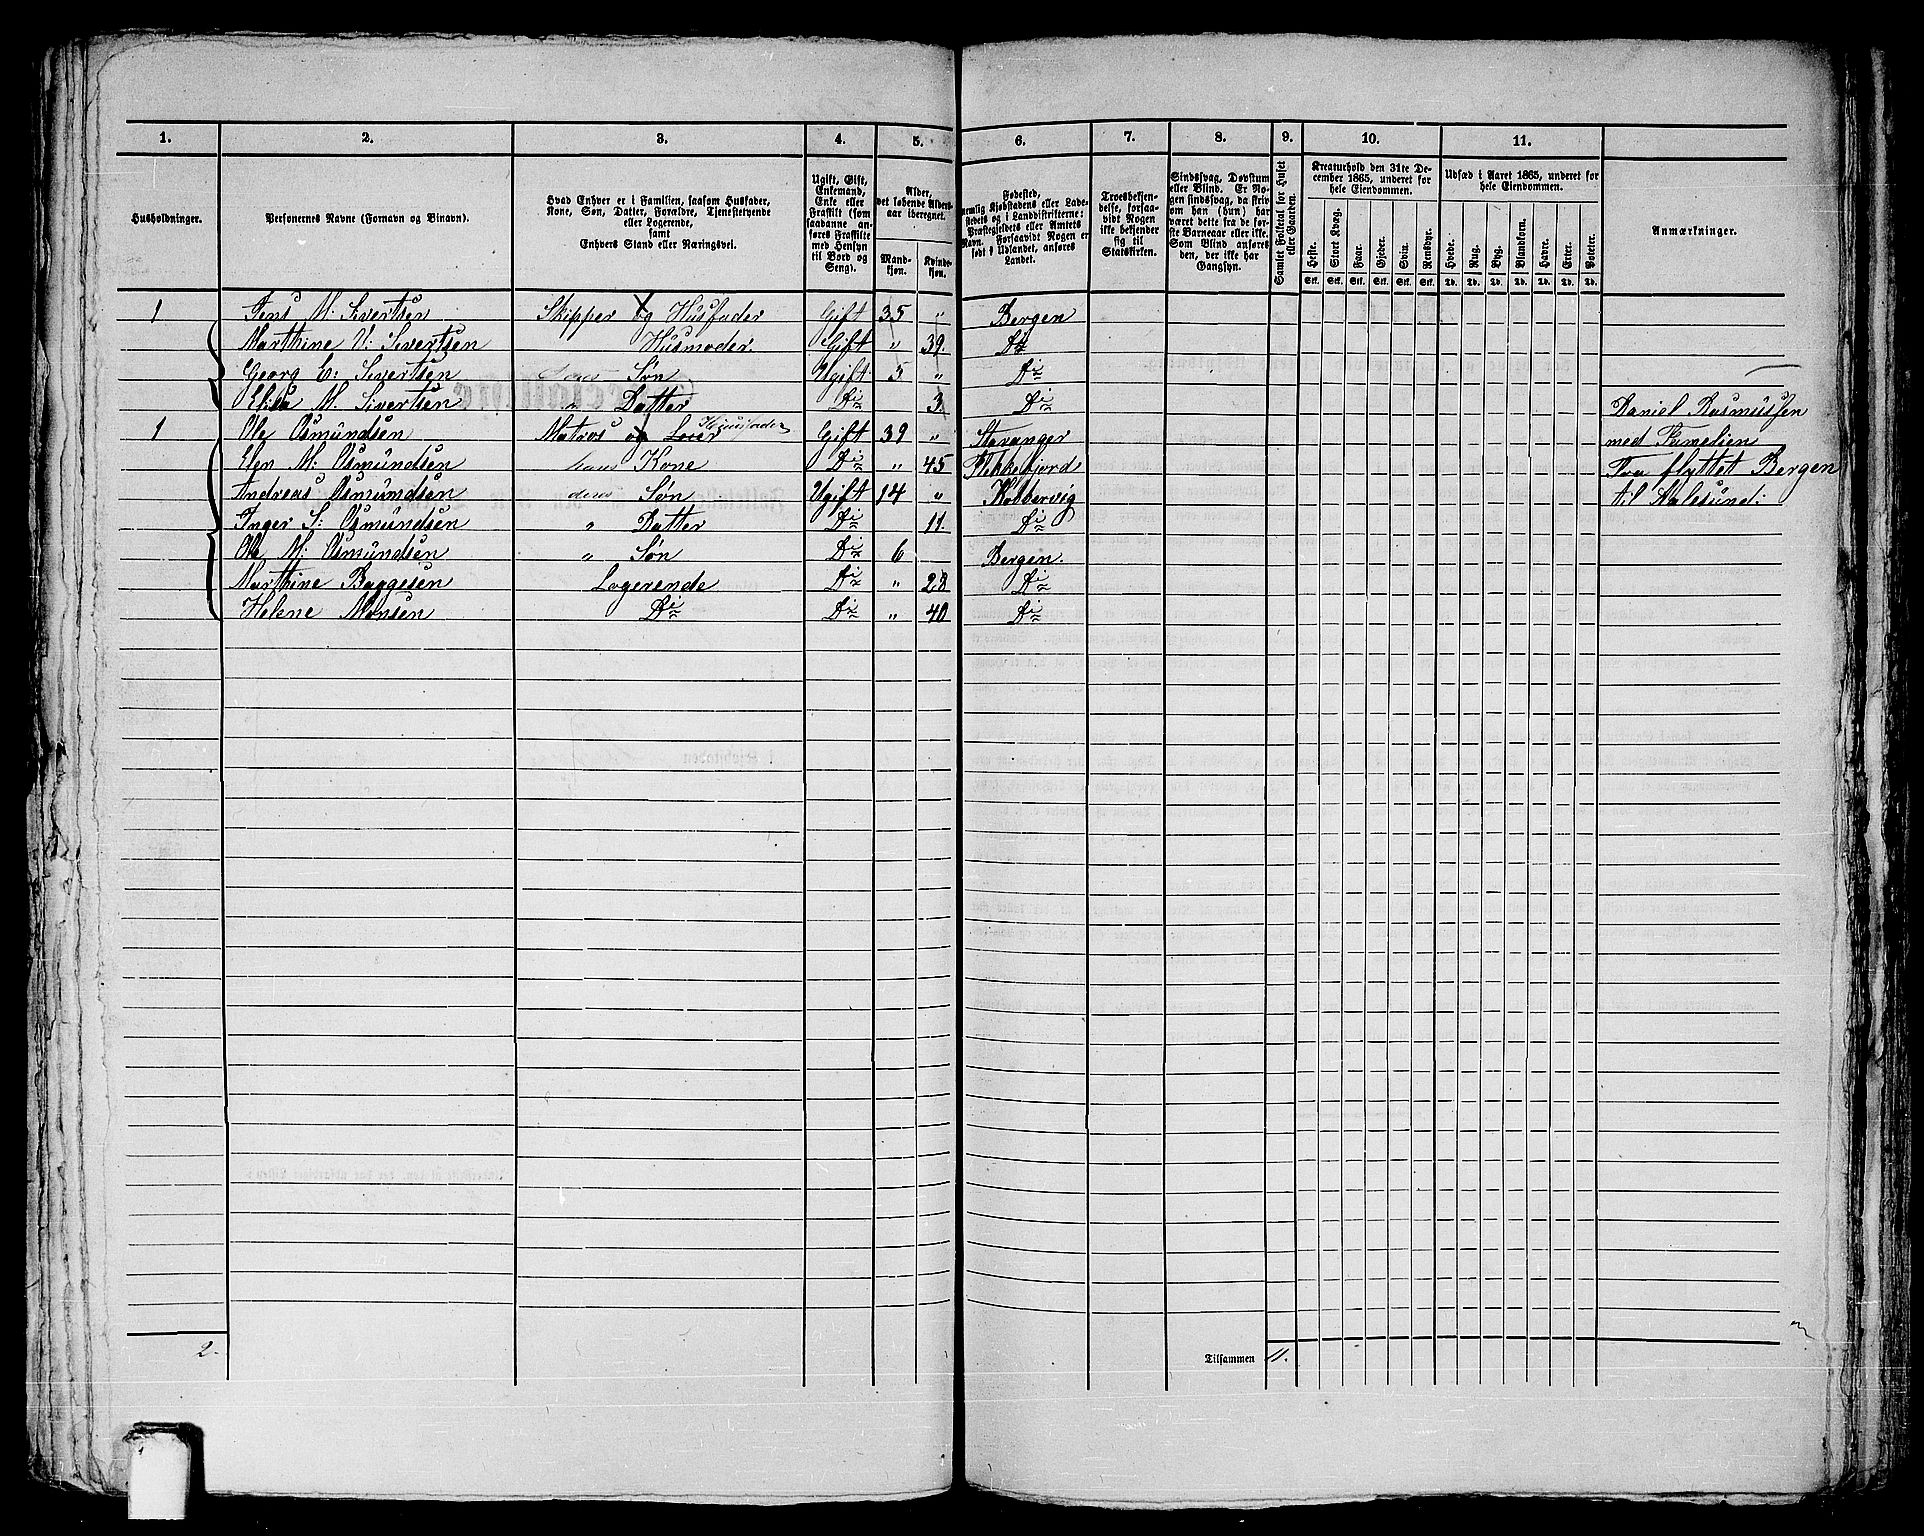 1. 2. 3. 4. 5. 6. 7. 8. 9. 10. 11.
Husholdninger.
Personernes Navne (Fornavn og Binavn).
Hvad Enhver er i Familien, saasom Husfader,
Kone, Søn, Datter, Forældre, Tjenestetyende
eller Logerende,
samt
Enhvers Stand eller Næringsvei.
Ugift, Gift,
Enkemand,
Enke eller
Fraskilt (som
saadanne an-
føres Fraskilte
med Hensyn
til Bord og
Seng).
Alder,
det løbende Alders-
aar iberegnet.
Mand-
kjøn.
Kvinde-
kjøn.
Fødested,
nemlig Kjøbstadens eller Lade-
stedets og i Landdistrikterne:
Præstegjeldets eller Amtets
Navn. Forsaavidt Nogen er
født i Udlandet, anføres
Landet.
Troesbekjen-
delse, forsaa-
vidt Nogen
ikke bekjender
sig til
Statskirken.
Sindssvag, Døvstum
eller Blind. Er No-
gen sindssvag, da skriv
om han (hun) har
været dette fra de før-
ste Barneaar eller ikke.
Som Blind anføres
den, der ikke har
Gangsyn.
Samlet Folketal for Huset
eller Gaarden.
Kreaturhold den 31te De-
cember 1865, underet for
hele Eiendommen.
Heste. Stort Kvæg. Faar. Gjeder. Svin. Rensdyr.
Stk. Stk. Stk. Stk. Stk. Stk.
Udsæd i Aaret 1865, underet for
hele Eiendommen.
Hvede. Rug. Byg. Blandkorn. Havre. Erter. Poteter.
Td. Td. Td. Td. Td. Td. Td.
Anmærkninger.
1 Jens M. Sivertsen Skipper og Husfader Gift 35 „ Bergen
Marthine V: Sivertsen Husmoder. Gift „ 39. Do
Georg E: Sivertsen deres Søn Ugift 5 „ Do
Elisa M. Sivertsen „ Datter Do 3 Do
1 Ole Osmundsen Matros og Husfader Gift 39 „ Stavanger
Elen M: Osmundsen hans Kone Do „ 45 Flekkefjord
Andreas Osmundsen deres Søn Ugift 14 „ Kobbervig
Inger S: Osmundsen „ Datter Do 11. Do
Ole M: Osmundsen „ Søn Do 6 Bergen.
Marthine Baggesen Logerende Do „ 28 Do
Helene Monsen Do Do „ 40 Do
Daniel Rasmussen
med Familien
Fra flyttet Bergen
til Aalesund:
2.
Tilsammen 11.